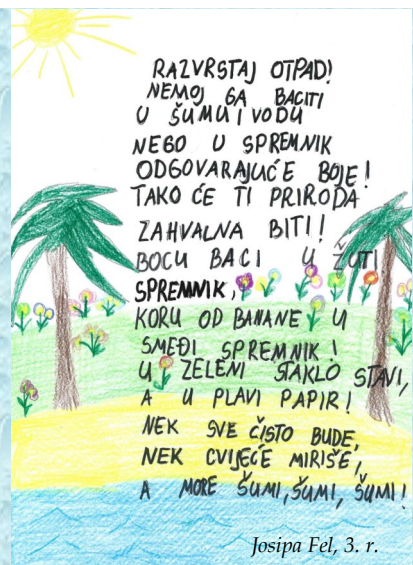 RAZVRSTAJ OTPAD!
NEMOJ GA BACITI
U ŠUMU I VODU
NEGO U SPREMNIK
ODGOVARAJUĆE BOJE!
TAKO ĆE TI PRIRODA
ZAHVALNA BITI!
BOCU BACI U ŽUTI
SPREMNIK,
KORU OD BANANE U
SMEĐI SPREMNIK!
U ZELENI STAKLO STAVI,
A U PLAVI PAPIR!
NEK SVE ČISTO BUDE,
NEK CVIJEĆE MIRIŠE,
A MORE ŠUMI, ŠUMI, ŠUMI!
Josipa Fel, 3. r.